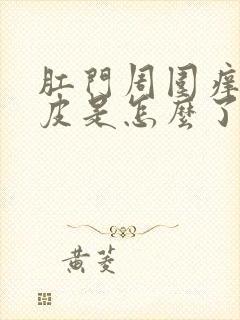 肛門周圍痒
皮是怎麼了
黄菱